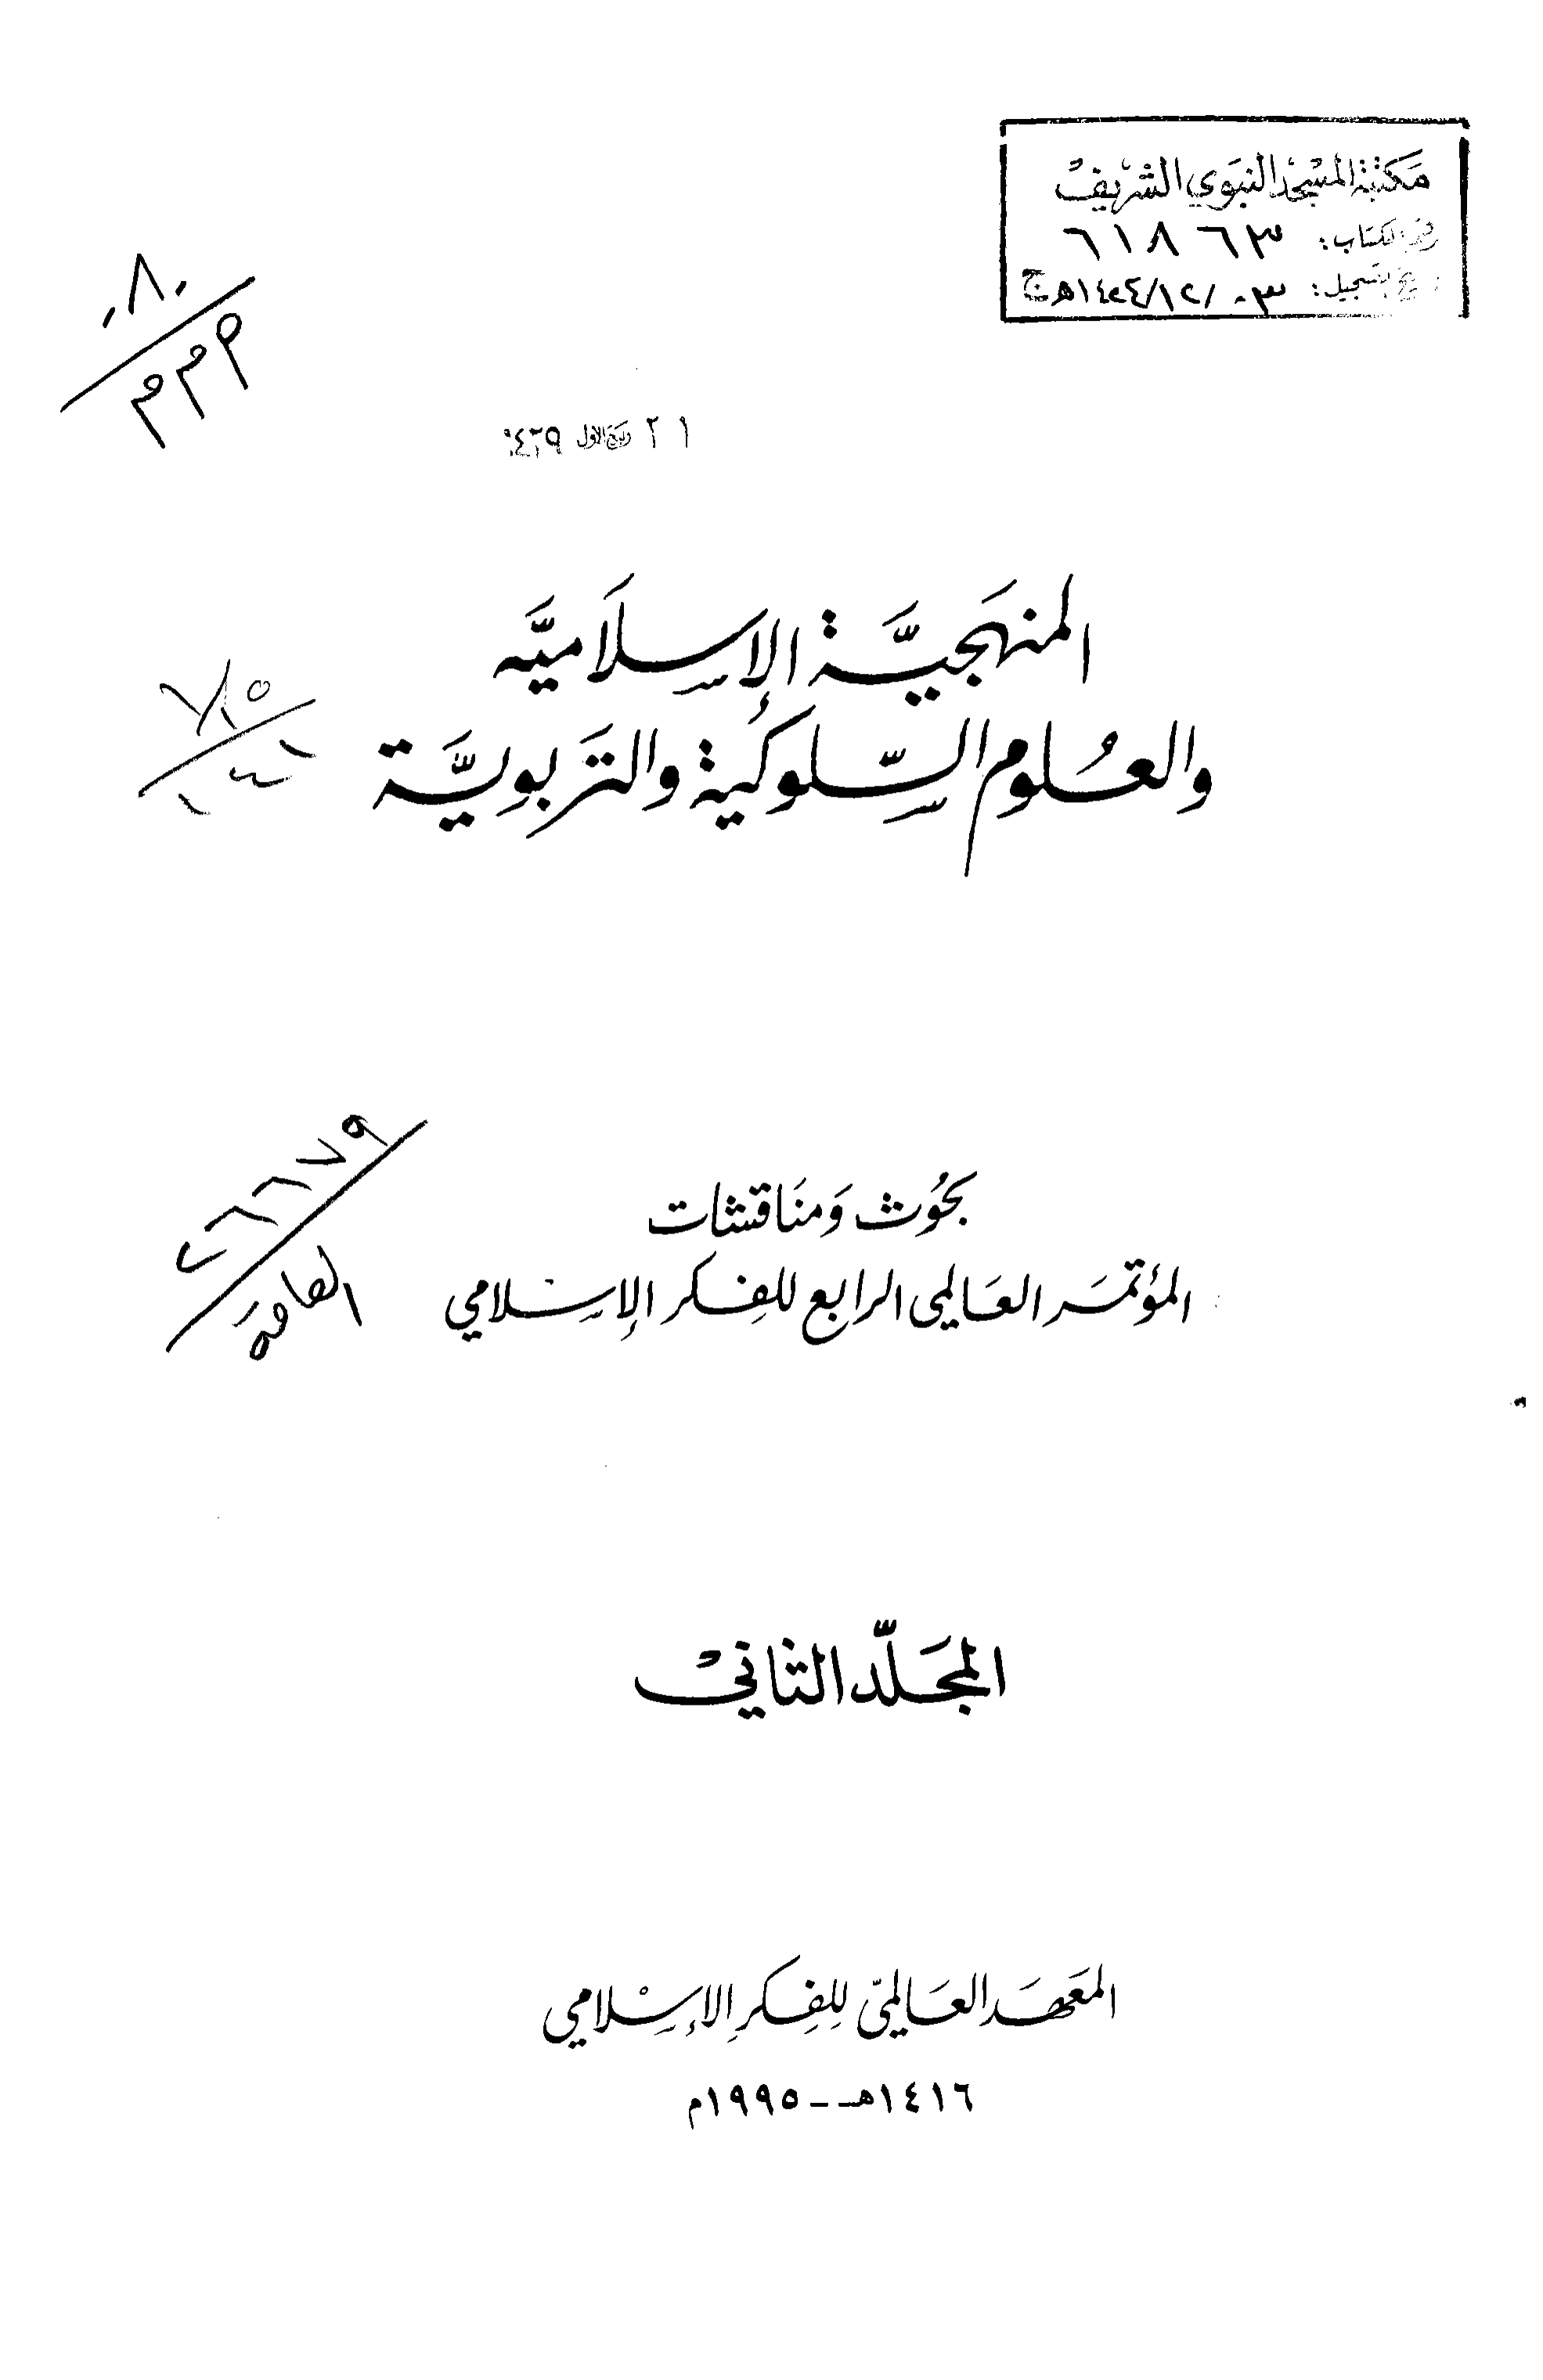 مكتبة المسجد النبوي الشريف
رقم الكتاب: ٦١٨٦٣
تاريخ التسجيل: ٠٣/١٢/١٤٢٤هـ ج
٠٨٠
٢١ ربيع الاول
المنهجيَّة الإسلاميَّه
والعلُوم السّلوكية والتَربويَّة
بحُوث وَمنَاقشات
المؤتمَر العَالمي الرابع للفِكر الإسلامي
٢٦٦٧٩
العامة
المجَلّد الثاني
المعَهَد العَالميّ لِلفِكرِ الإسْلامي
١٤١٦هـ - ١٩٩٥م